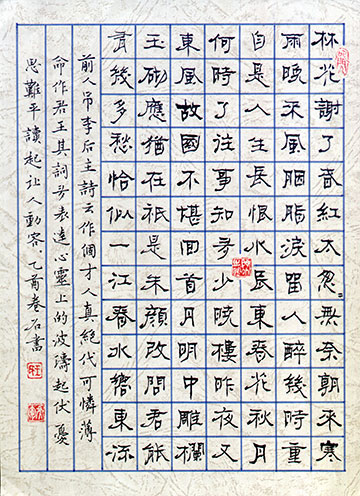 林花謝了春紅太忽〻無奈朝來寒
雨晚來風胭脂淚留人醉幾時重
自是人生長恨水長東春花秋月
何時了往事知多少曉樓昨夜又
東風故國不堪回首月明中雕欄
玉砌應猶在祇是朱顏改問君能
有幾多愁恰似一江春水向東流
前人吊李后主詩云作個才人真絕代可憐薄
命作君王其詞多表達心靈上的波濤起伏憂
思難平讀起让人動容乙酉卷石書